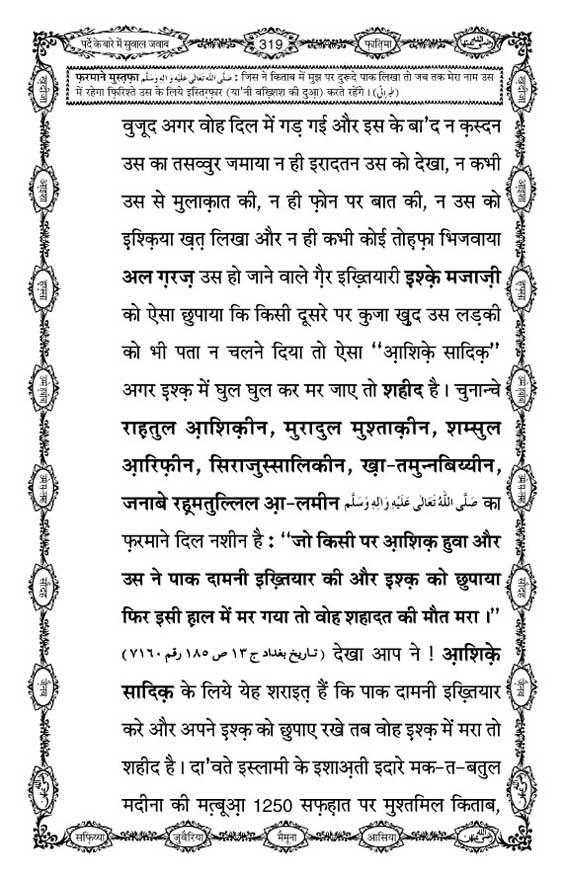 पर्दे के बारे में सुवाल जवाब
319
फ़ातिमा
फ़रमाने मुस्तफ़ा صَلَّى اللهُ تَعَالٰى عَلَيْهِ وَاٰلِهٖ وَسَلَّم : जिस ने किताब में मुझ पर दुरूदे पाक लिखा तो जब तक मेरा नाम उस
में रहेगा फ़िरिश्ते उस के लिये इस्तिग़्फ़ार (या'नी बख़्शिश की दुआ) करते रहेंगे। (طبرانی)
वुजूद अगर वोह दिल में गड़ गई और इस के बा'द न क़स्दन
उस का तसव्वुर जमाया न ही इरादतन उस को देखा, न कभी
उस से मुलाक़ात की, न ही फ़ोन पर बात की, न उस को
इ़श्क़िया ख़त़ लिखा और न ही कभी कोई तोह़फ़ा भिजवाया
अल ग़रज़ उस हो जाने वाले ग़ैर इख़्तियारी इ़श्क़े मजाज़ी
को ऐसा छुपाया कि किसी दूसरे पर कुजा ख़ुद उस लड़की
को भी पता न चलने दिया तो ऐसा “आ़शिक़े सादिक़”
अगर इ़श्क़ में घुल घुल कर मर जाए तो शहीद है। चुनान्चे
राह़तुल आ़शिक़ीन, मुरादुल मुश्ताक़ीन, शम्सुल
आ़रिफ़ीन, सिराजुस्सालिकीन, ख़ा-तमुन्नबिय्यीन,
जनाबे रह़मतुल्लिल आ़-लमीन صَلَّى اللهُ تَعَالٰى عَلَيْهِ وَاٰلِهٖ وَسَلَّم का
फ़रमाने दिल नशीन है : “जो किसी पर आ़शिक़ हुवा और
उस ने पाक दामनी इख़्तियार की और इ़श्क़ को छुपाया
फिर इसी ह़ाल में मर गया तो वोह शहादत की मौत मरा।”
(تاریخ بغداد ج ۱۳ ص ۱۸۵ رقم ۷۱۶۰) देखा आप ने ! आ़शिक़े
सादिक़ के लिये येह शराइत़ हैं कि पाक दामनी इख़्तियार
करे और अपने इ़श्क़ को छुपाए रखे तब वोह इ़श्क़ में मरा तो
शहीद है। दा'वते इस्लामी के इशाअ़ती इदारे मक-त-बतुल
मदीना की मत़्बूआ़ 1250 सफ़ह़ात पर मुश्तमिल किताब,
सफ़िय्या
जुवैरिया
मैमूना
आसिया